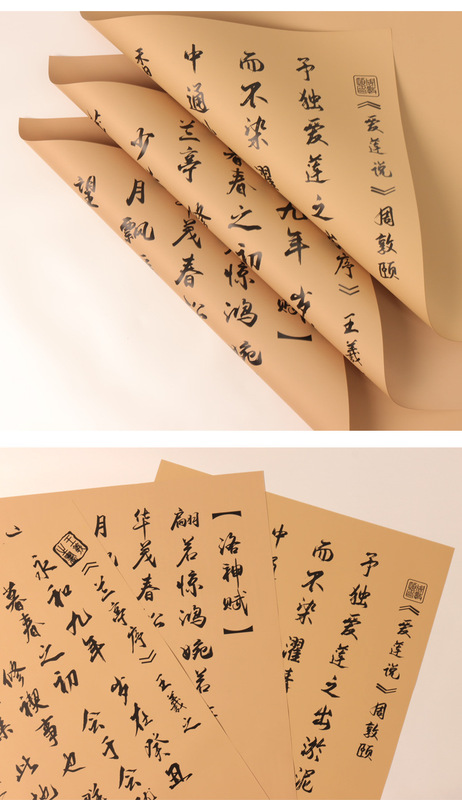 《爱莲说》周敦颐
予独爱莲之
而不染
中通
香
序》王羲
九年 岁
春之初
兰亭
少
赋】
惊鸿婉
茂春
月飘
望
《爱莲说》周敦颐
予独爱莲之出淤泥
而不染濯
中
【洛神赋】
翩若惊鸿婉若
华茂春
月
《兰亭序》王羲之
永和九年 岁在
暮春之初 会于会
修禊事也
此地